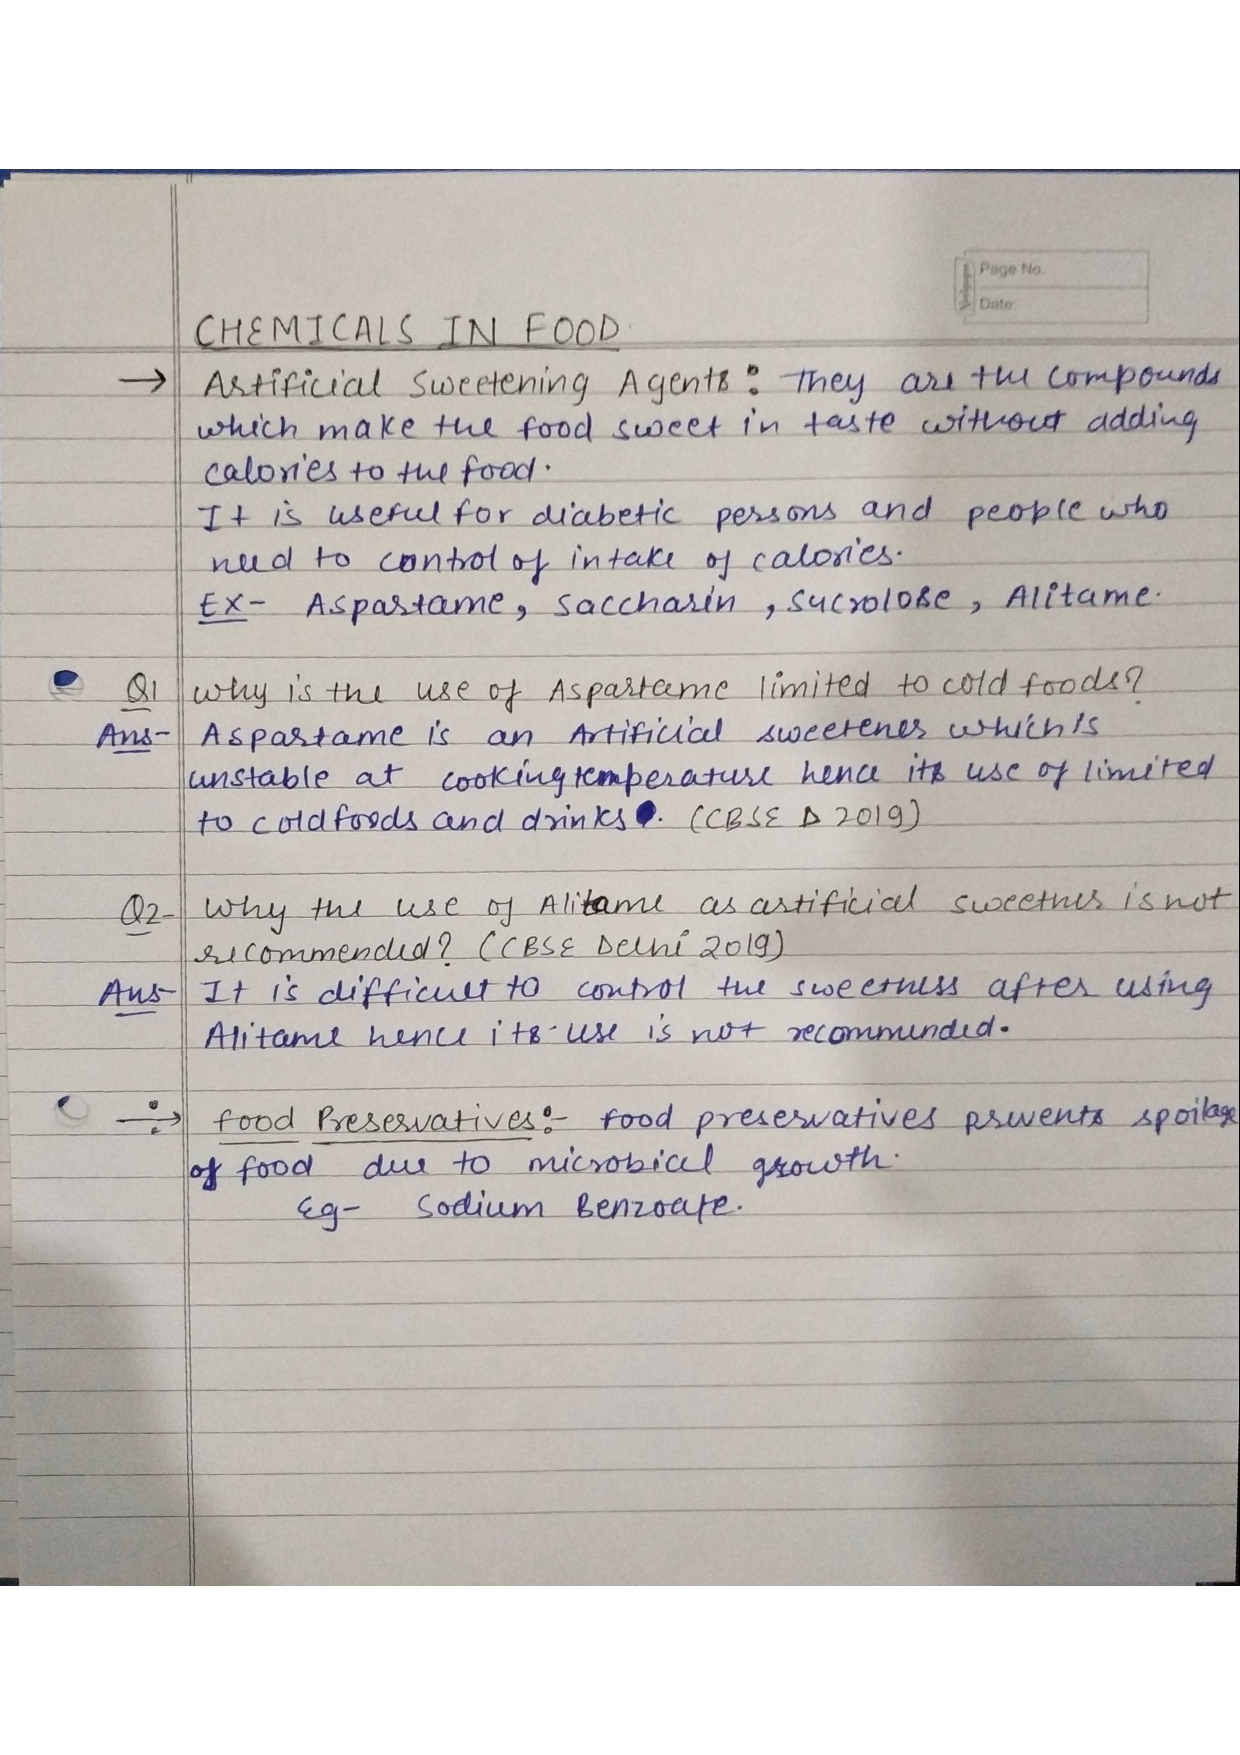 Page No.
Date:
CHEMICALS IN FOOD
→ Artificial Sweetening Agents: They are the compounds
which make the food sweet in taste without adding
calories to the food.
It is useful for diabetic persons and people who
need to control of intake of calories.
Ex- Aspartame, saccharin, sucrolose, Alitame.
Q1 why is the use of Aspartame limited to cold foods?
Ans- Aspartame is an Artificial sweetener which is
unstable at cooking temperature hence its use of limited
to cold foods and drinks. (CBSE D 2019)
Q2- Why the use of Alitame as artificial sweetner is not
recommended? (CBSE Delhi 2019)
Ans- It is difficult to control the sweetness after using
Alitame hence its use is not recommended.
→ food Preservatives:- food preservatives prevents spoilage
of food due to microbial growth.
Eg- Sodium Benzoate.